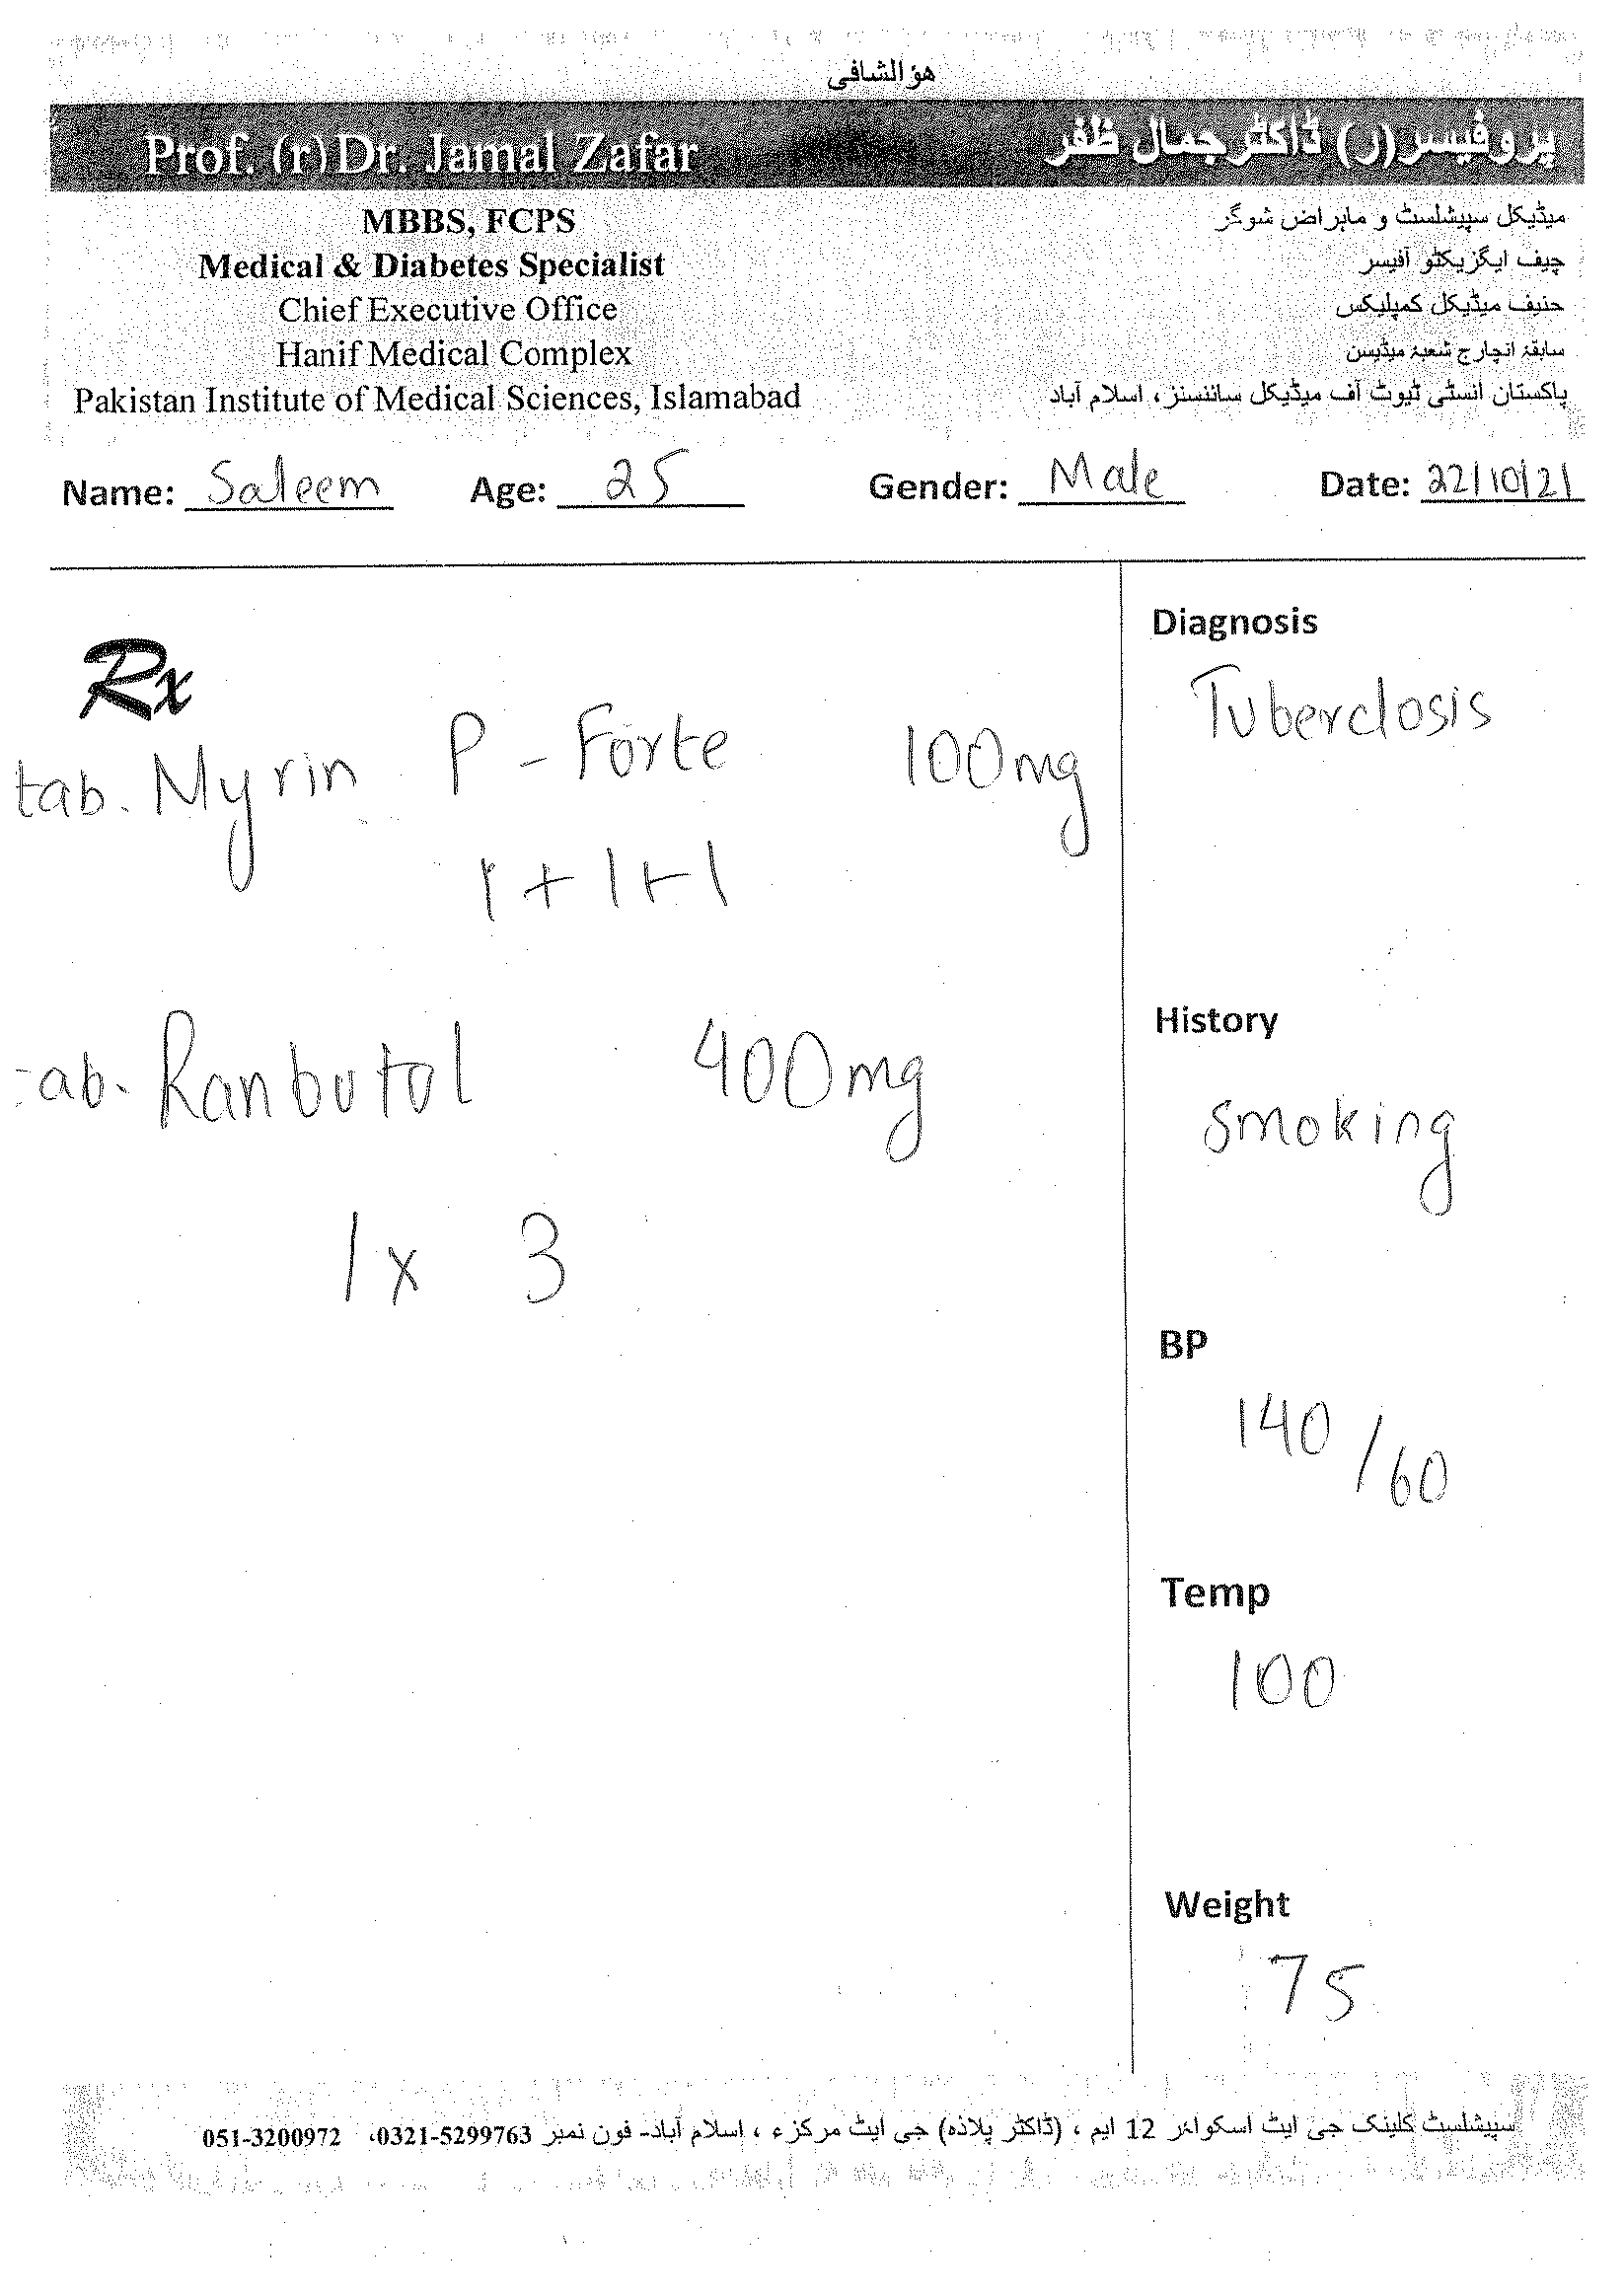 هو الشافی
Prof. (r) Dr. Jamal Zafar
پروفیسر (ر) ڈاکٹر جمال ظفر
MBBS, FCPS
Medical & Diabetes Specialist
Chief Executive Office
Hanif Medical Complex
Pakistan Institute of Medical Sciences, Islamabad
میڈیکل سپیشلسٹ و ماہر اض شوگر
چیف ایگزیکٹو آفیسر
حنیف میڈیکل کمپلیکس
سابقہ انچارج شعبۂ میڈیسن
پاکستان انسٹی ٹیوٹ آف میڈیکل سائنسز، اسلام آباد
Name: Saleem Age: 25 Gender: Male Date: 22/10/21
Rx
tab. Myrin P - Forte 100mg
1 + 1 + 1
tab. Ranbutol 400mg
1 x 3
Diagnosis
Tuberclosis
History
smoking
BP
140/60
Temp
100
Weight
75
سپیشلسٹ کلینک جی ایٹ اسکوائر 12 ایم ، (ڈاکٹر پلاذہ) جی ایٹ مرکزء ، اسلام آباد۔ فون نمبر 0321-5299763، 051-3200972